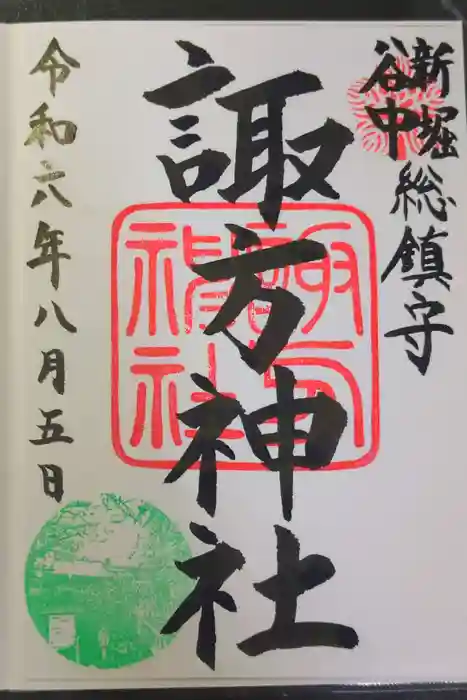 新堀
谷中
総鎮守
諏方神社
諏方
神社
令和六年八月五日